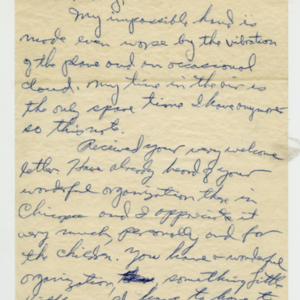 My impossible hand is
made even worse by the vibration
of the plane and an occasional
cloud. My time in the air is
the only spare time I have anymore
so this note.
Received your very welcome
letter. Have already heard of your
wonderful organization there in
Chicopee and I appreciate it
very much, personally and for
the children. You have a wonderful
organization something little